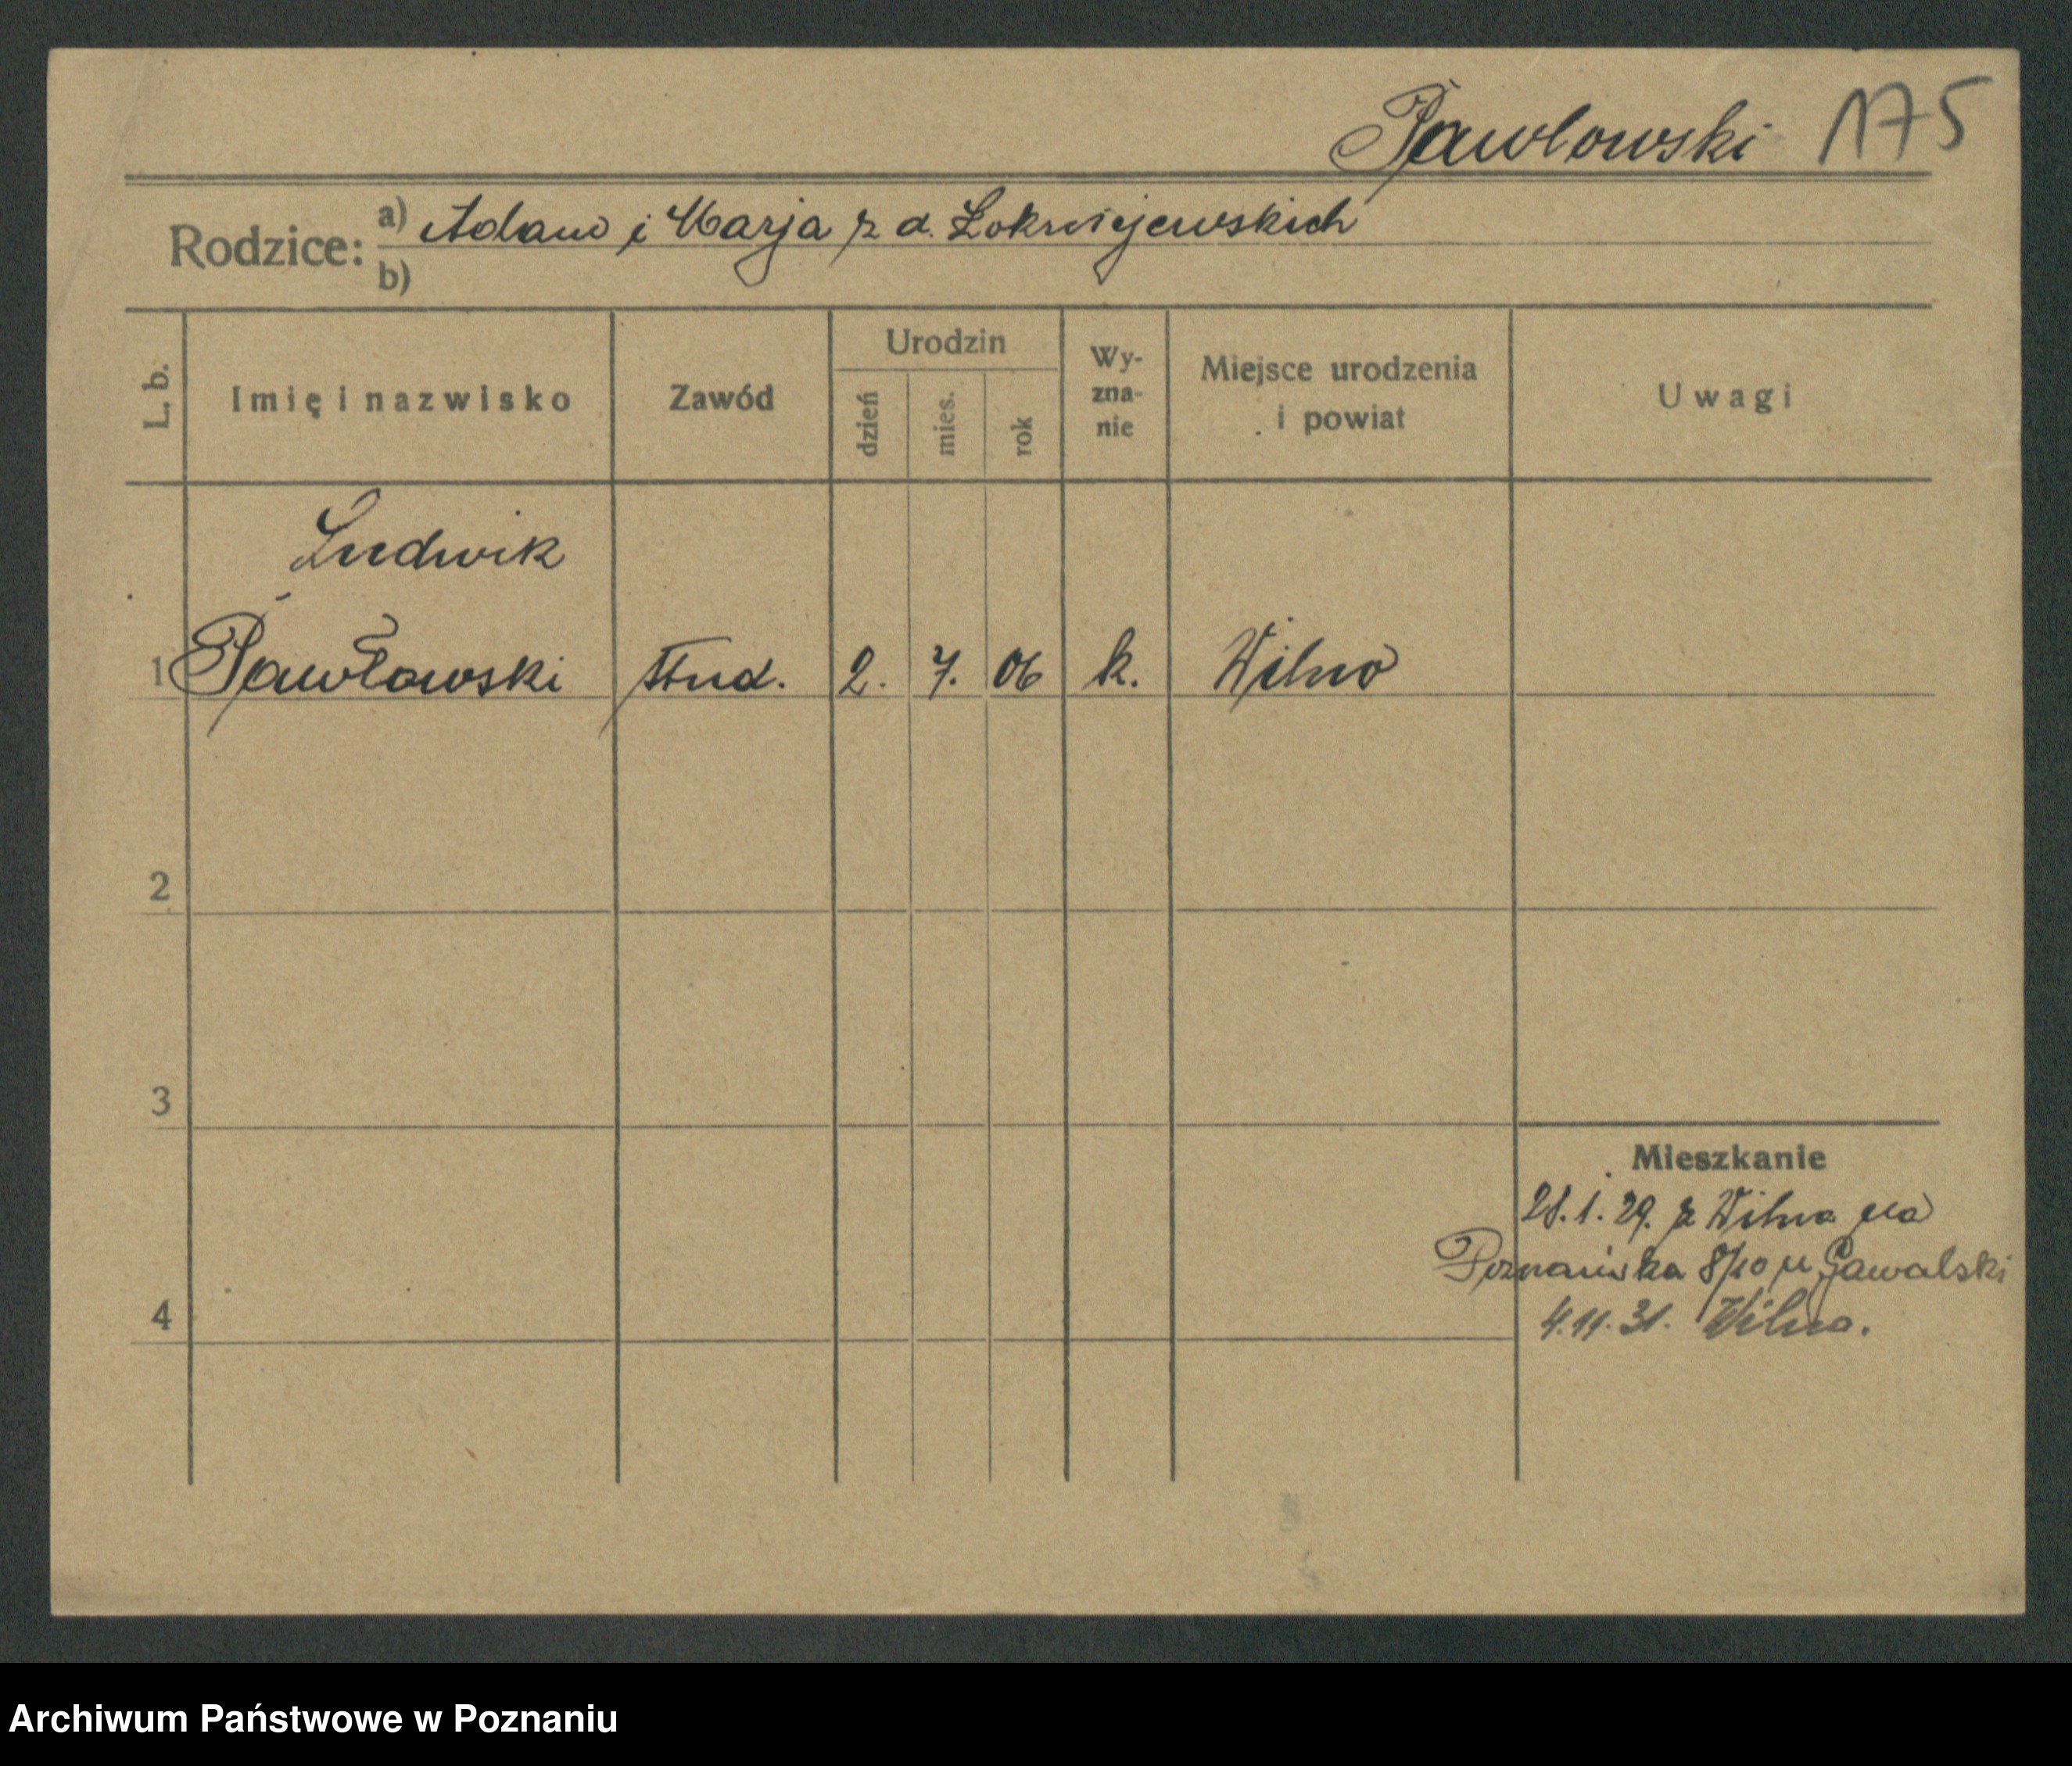 Pawlowski 175
Rodzice: a) Adam i Marja z d. Łokuciejewskich
b)
L. b. Imię i nazwisko Zawód Urodzin dzień mies. rok Wyznanie Miejsce urodzenia i powiat Uwagi
Ludwik
1 Pawłowski stud. 2. 7. 06 k. Wilno
2
3
Mieszkanie
28.1.29. z Wilna na
Poznańska 8/10 u Gawalski
4
4.11.31. Wilno.
Archiwum Państwowe w Poznaniu